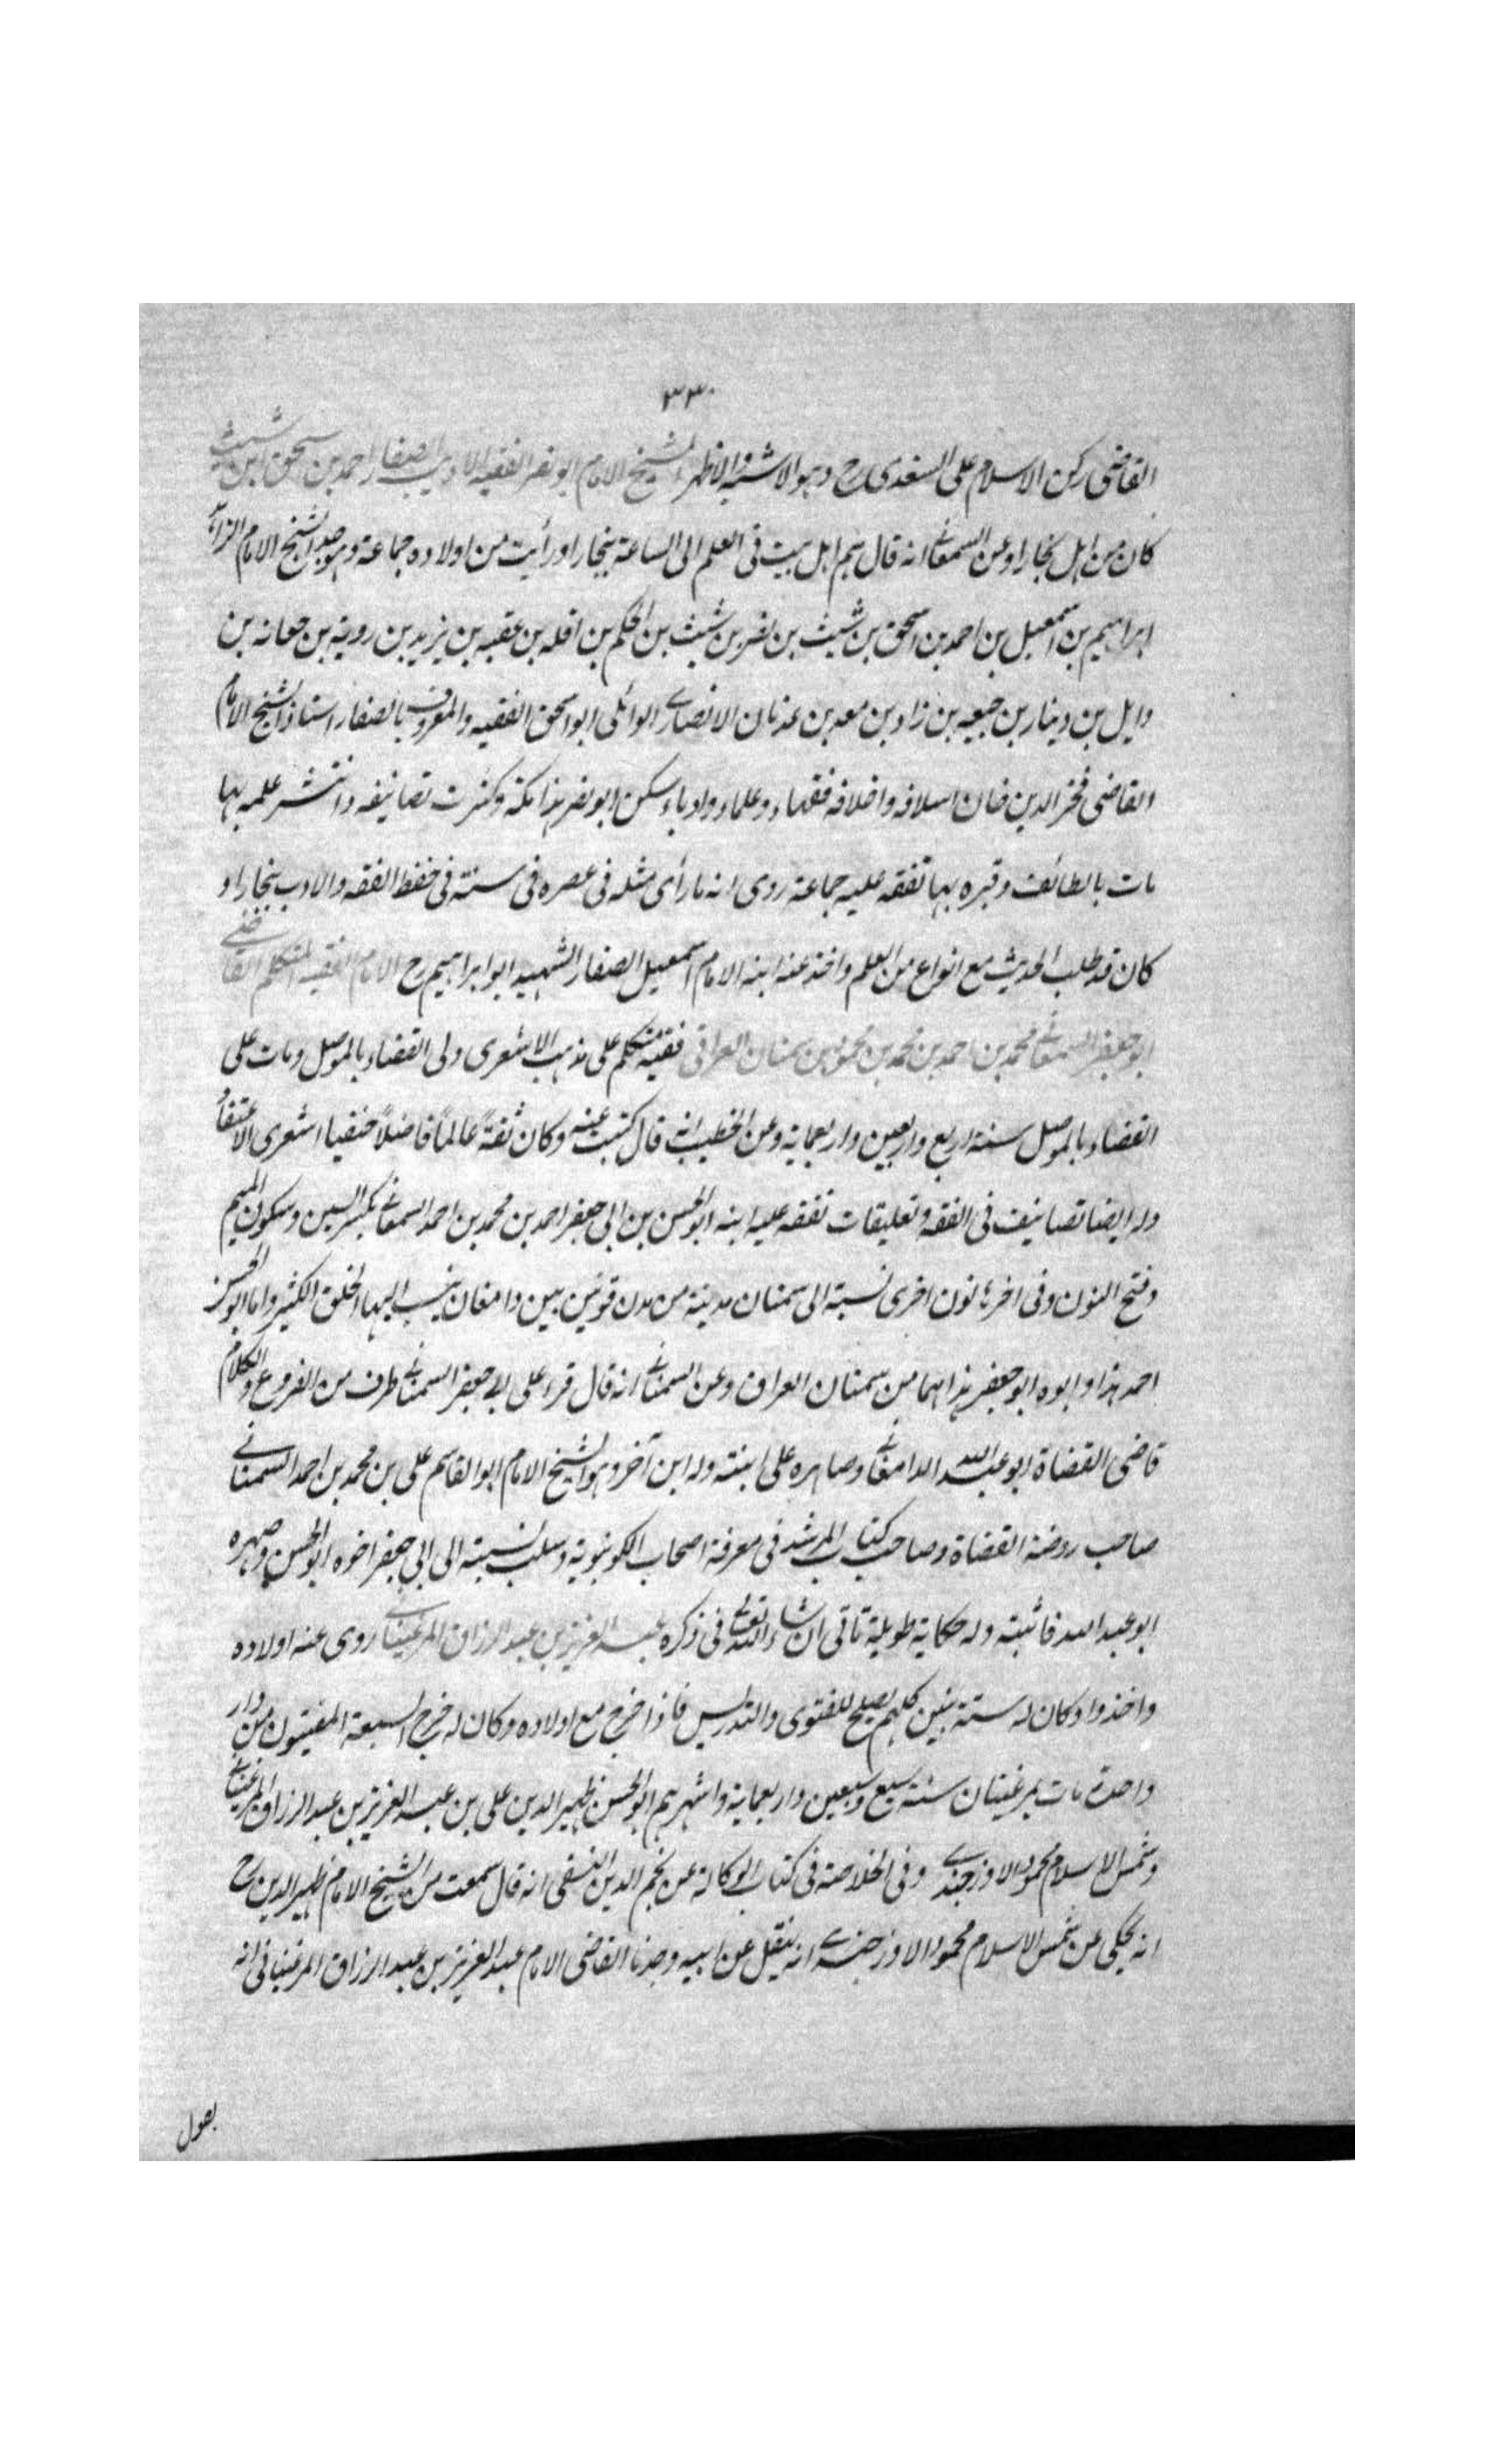 ٣٣٠
القاضى ركن الاسلام على السغدى رح وهو الاشبه والاظهر الشيخ الامام ابو نصر الفقيه الاديب الصفار احمد بن اسحق ابن شيث
كان من اهل بخارا وعن السمعانى انه قال هم اهل بيت فى العلم الى الساعة ببخارا ورأيت من اولاده جماعة وهو جد الشيخ الامام الزاهد
ابراهيم بن اسمعيل بن احمد بن اسحق بن شيث بن نصر بن شيث بن الحكم بن افله بن عقبه بن يزيد بن روبة بن جعانه بن
وايل بن دينار بن جبيعه بن زاد بن معد بن عدنان الانصارى الوائلى ابو اسحق الفقيه والمعروف بالصفار استاذ الشيخ الامام
القاضى فخر الدين خان اسلافه واخلافه فقهاء وعلماء وادباء سكن ابو نصر هذا مكة وكثرت تصانيفه وانتشر علمه بها
مات بالطائف وقبره بها تفقه عليه جماعة روى انه ما رأى مثله فى عصره فى سنة فى حفظ الفقه والادب ببخارا و
كان قد طلب الحديث مع انواع من العلم واخذ عنه ابنه الامام اسمعيل الصفار الشهيد ابو ابراهيم رح الامام الفقيه المتكلم القاضى
ابو جعفر السمعانى محمد بن احمد بن محمد بن محمود بن سمنان العراقى فقيه متكلم على مذهب الاشعرى ولى القضاء بالموصل ومات على
القضاء بالموصل سنة اربع واربعين واربعماية وعن الخطيب انه قال كتبت عنه وكان ثقة عالما فاضلا حنفيا اشعرى الاعتقاد
وله ايضا تصانيف فى الفقه وتعليقات تفقه عليه ابنه ابو الحسن بن ابى جعفر احمد بن محمد بن احمد السمعانى بكسر السين وسكون الميم
وفتح النون وفى اخرها نون اخرى نسبة الى سمنان مدينة من مدن قومس بين دامغان ينسب اليها الخلق الكثير واما ابو الحسن
احمد هذا وابوه ابو جعفر هذا هما من سمنان العراق وعن السمنانى انه قال قرء على ابى جعفر السمنانى طرف من الفروع والكلام
قاضى القضاة ابو عبد الله الدامغانى وصاهره على ابنته وله ابن آخر وهو الشيخ الامام ابو القاسم على بن محمد بن احمد السمنانى
صاحب روضة القضاة وصاحب كتاب المرشد فى معرفة اصحاب الكونبوية وسلب نسبة الى ابى جعفر اخوه ابو الحسن وصهره
ابو عبد الله فاثبته وله حكاية طويلة تاتى ان شاء الله تعالى فى ذكره عبد العزيز بن عبد الرزاق المرغينانى روى عنه اولاده
واخذوا وكان له ستة بنين كلهم يصلح للفتوى والتدريس فاذا خرج مع اولاده وكان له خرج السبعة المفتيون من دار
واحدة مات بمرغينان سنة سبع وسبعين واربعماية واشهرهم ابو الحسن ظهير الدين على بن عبد العزيز بن عبد الرزاق المرغينانى
وشمس الاسلام محمود الاوزجندى وفى الخلاصة فى كتاب الوكالة عن نجم الدين النسفى انه قال سمعت من الشيخ الامام ظهير الدين رح
انه يحكى عن شمس الاسلام محمود الاوزجندى انه ينقل عن ابيه وجدنا القاضى الامام عبد العزيز بن عبد الرزاق المرغينانى انه
يعول